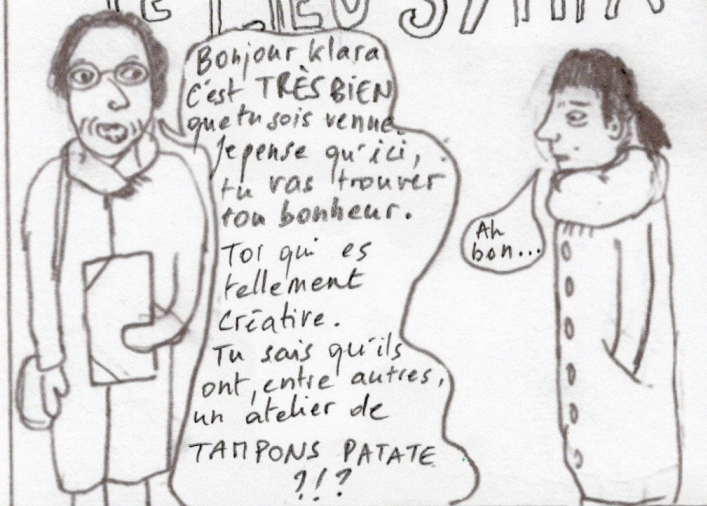 LE LIEU SYMPA
Bonjour klara
C'est TRÈS BIEN
que tu sois venue.
Je pense qu'ici,
tu vas trouver
ton bonheur.
Toi qui es
tellement
créative.
Tu sais qu'ils
ont, entre autres,
un atelier de
TAMPONS PATATE
?!?
Ah
bon...